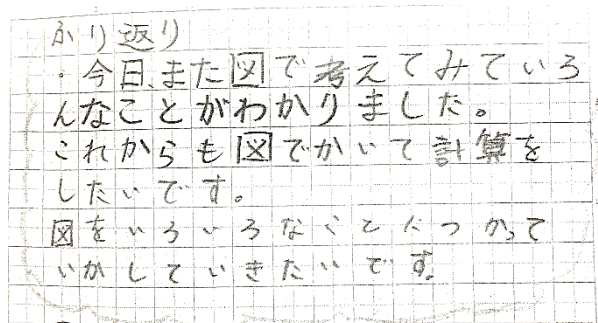 ふり返り
・今日、また図で考えてみていろ
んなことがわかりました。
これからも図でかいて計算を
したいです。
図をいろいろなことにつかって
いかしていきたいです。